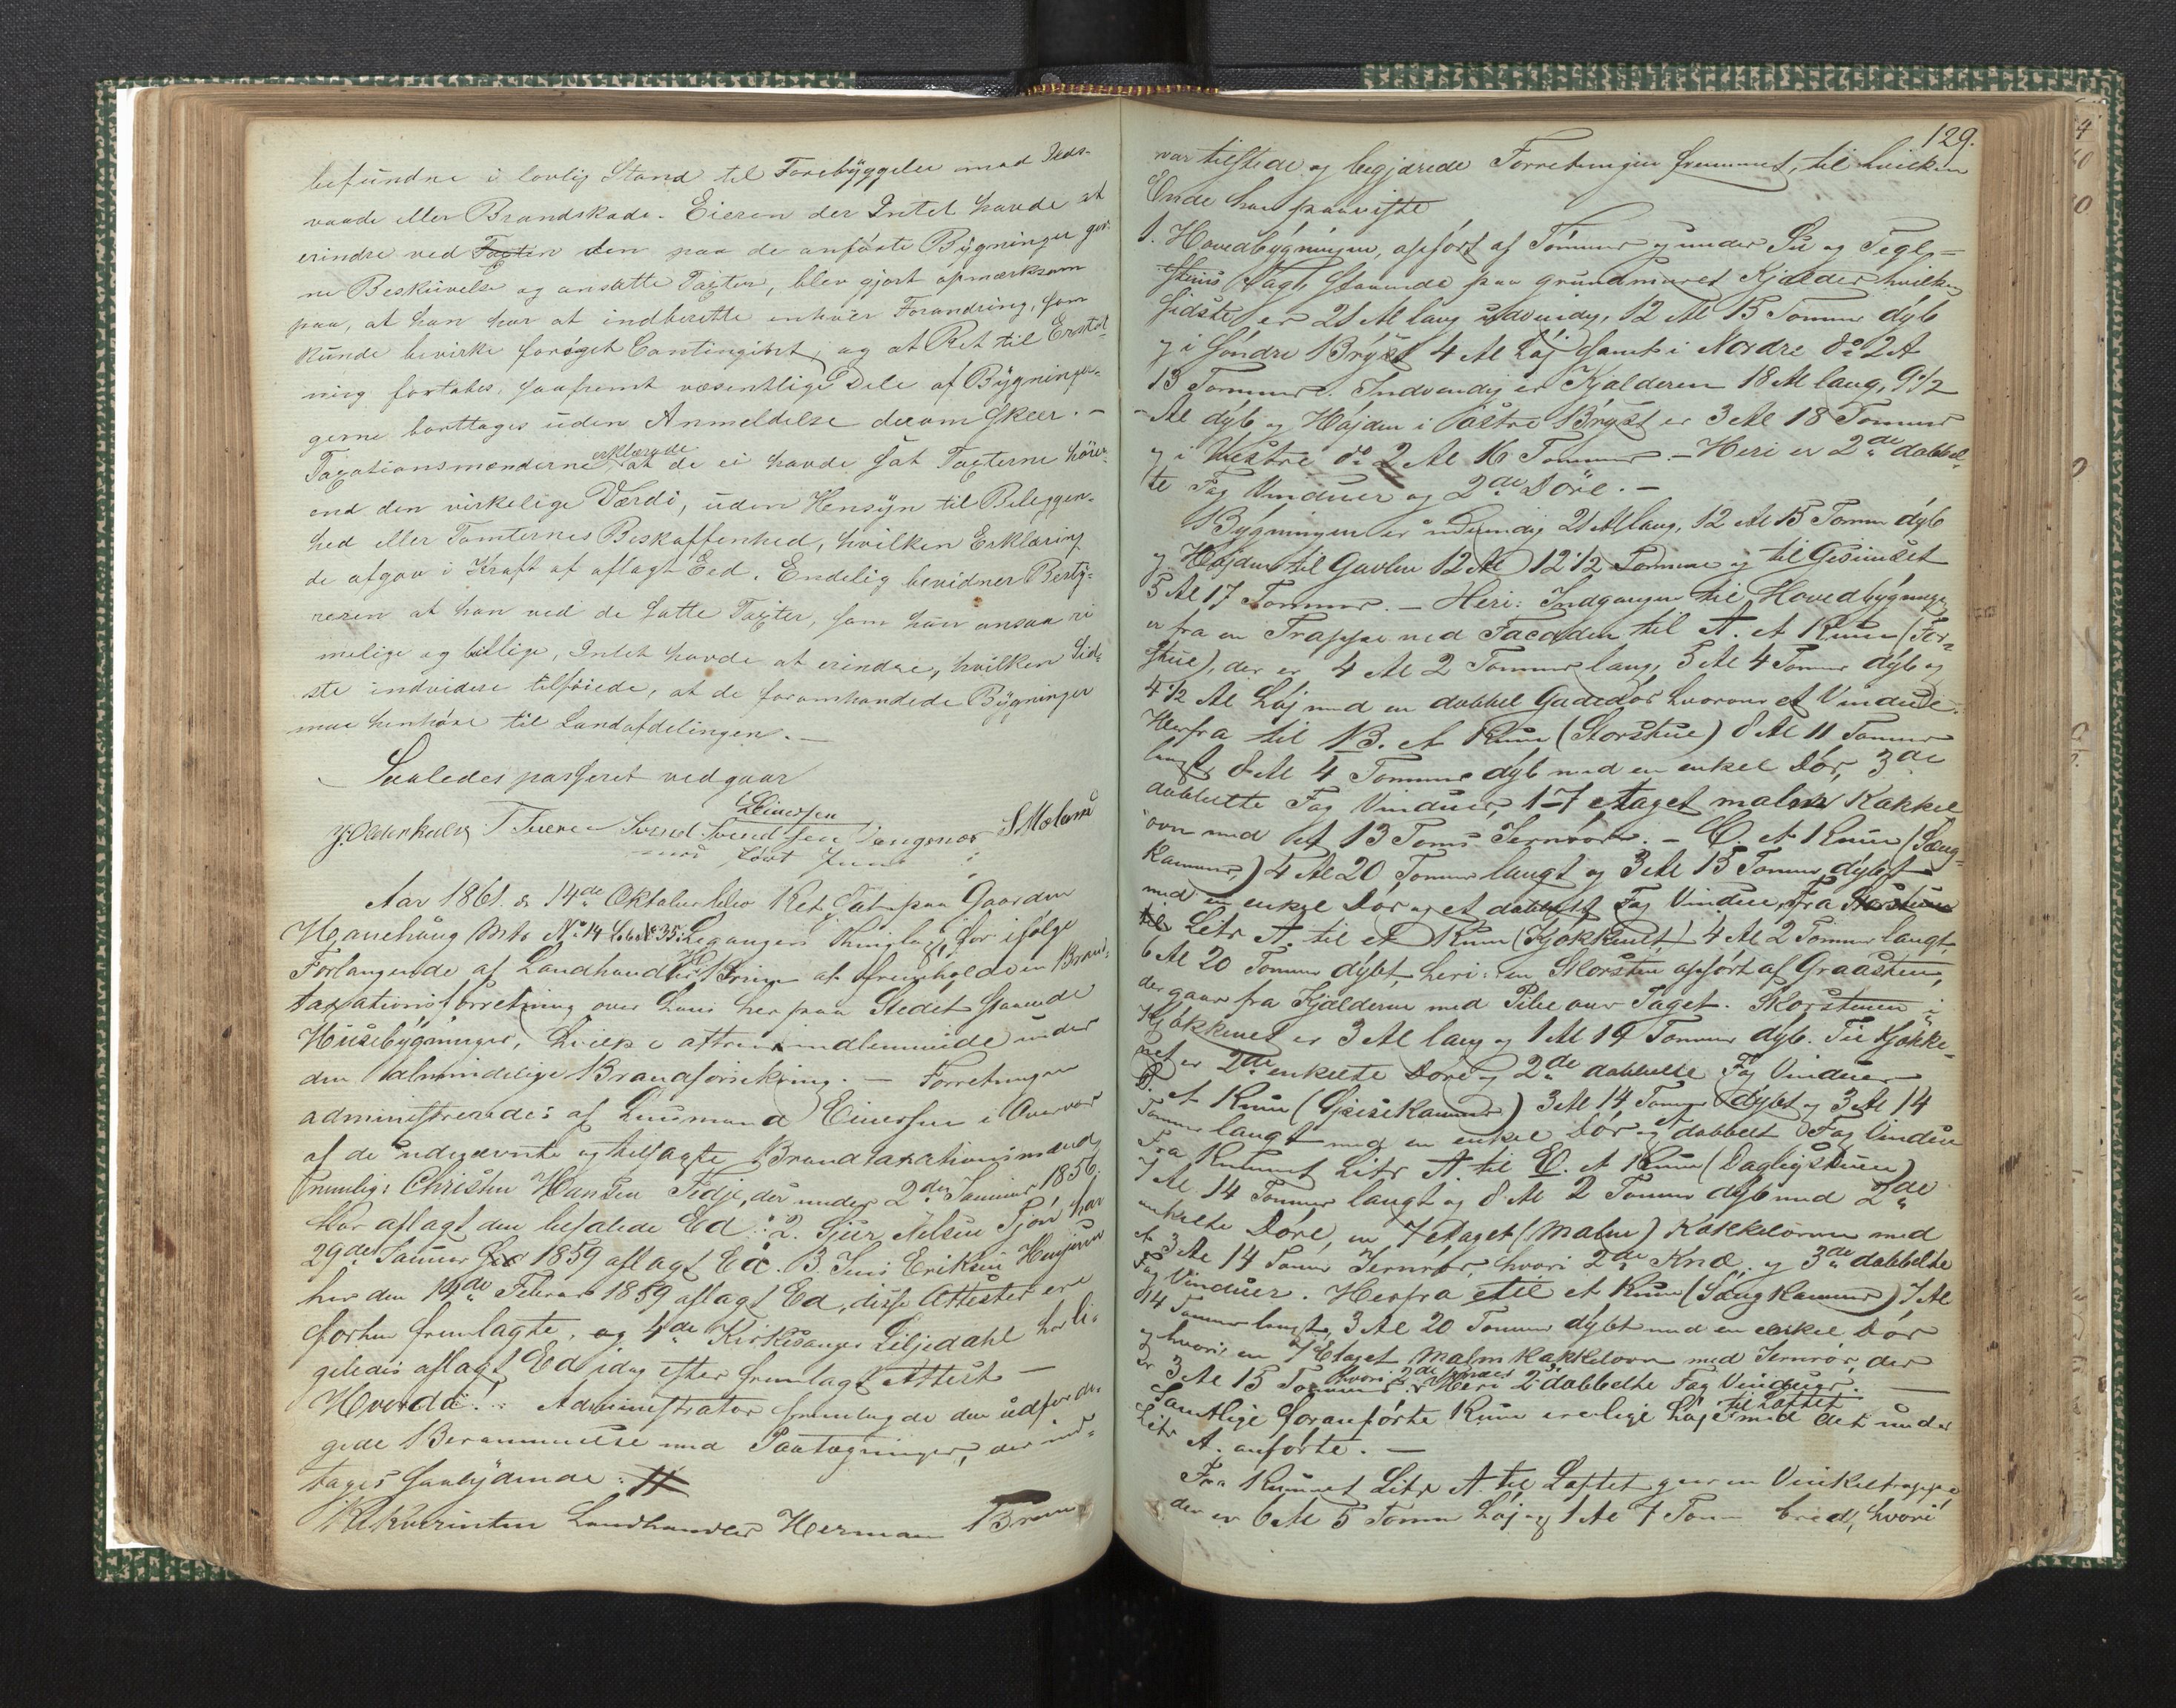 befundne i lovlig Stand til Forebyggelse mod Ilds-
vaade eller Brandskade. Eieren der Intet havde at
erindre ved Taxten den paa de anførte Bygninger gjor-
ne Beskrivelse og ansatte Taxter, blev gjort opmærksom
paa, at han har at indberette enhver Forandring, som
kunde bevirke forøget Contingent, og at Ret til Erstat-
ning fortabes, saafremt væsentlige Dele af Bygningen-
gerne borttages uden Anmeldelse derom skeer. -
Taxationsmænderne erklærede at de ei havde sat Taxterne høiere
end den virkelige Værdi, uden Hensyn til Beliggen-
hed eller Tomternes Beskaffenhed, hvilken Erklæring
de afgav i Kraft af aflagt Eed. Endelig bevidner Besty-
reren at han ved de satte Taxter, som han ansaa ri
melige og billige, Intet havde at erindre, hvilken Sid-
ste endvidere tilføiede, at de foromhandlede Bygninger
maa henhøre til Landafdelingen. -
Saaledes passeret vedgaar
Einersen
T Svend Svendsen
Aar 1861. d. 14de Oktober blev Ret sat paa Gaarden
Hauehaug Mto No 14 Lb No 35 Leganger Thinglag, for ifølge
Forlangende af Landhandler H Brun at fremholde en Brand-
taxationsforretning over hans her paa Stedet staaende
Husebygninger, hvilke attraaes indlemmede under
den almindelige Brandforsikring. - Forretningen
administreredes af Lensmand Einersen i
af de undernævnte og tilsagte Brandtaxationsmænd
nemlig: Christen Hansen Tedje, der under 2den Januar 1856.
har aflagt den befalede Ed: 2. Sjur Nilsen Tjøn har
29de Januar 1859 aflagt Ed. 3. Jens Eriksen Henjum
har den 19de Februar 1859 aflagt Ed, disse Attester ere
forhen fremlagte, og 4de Kirkesanger Liljedahl har li-
geledes aflagt Ed idag efter fremlagt Attest -
Hvorda: Administrator fremlagde den udfærdi-
gede Berammelse med Paategninger, der ind-
tages saalydende: #
Rekvirenten Landhandler Herman Brun
129.
var tilstede og begjærede Forretningen fremmet, til hvilken
Ende han paaviste
1. Hovedbygningen, opført af Tømmer og under Su og Tegl=
steens Tag, staaende paa grundmuret Kjælder hvilken
sidste er 21 Al lang udvendig, 12 Al 15 Tommer dyb
og i søndre Bryst 4 Al høj samt i Nordre do 2 A
13 Tommer. Indvendig er Kjælderen 18 Al lang, 9 1/2
Al dyb og Højden i Østre Bryst er 3 Al 18 Tommer
og i Vestre do 2 Al 16 Tommer. - Heri er 2de dobbel-
te Fag Vinduer og 2de Döre. -
Bygningen er udvendig 21 Al lang, 12 Al 15 Tomm dyb
og Højden til Gavlen 12 Al 12 1/2 Tomme og til Gesimset
5 Al 17 Tommer. - Heri: Indgangen til Hovedbygningen
er fra en Trappe ved Facaden til A. et Rum (For-
stue), der er 4 Al 2 Tommer lang, 5 Al 4 Tommer dyb og
4 1/2 Al høj med en dobbel Gadedør hvorover et Vindue.
Herfra til B. et Rum (Storstue) 8 Al 11 Tommer
langt, 8 Al 4 Tommer dyb med en enkel Dör, 3de
dobbelte Fag Vinduer, 1-7 etaget malm Kakkel
ovn med et 13 Toms Jernrør. - C. et Rum (Seng-
kammer) 4 Al 20 Tommer langt og 3 Al 15 Tommer dybt
med en enkel Dör og et dobbelt Fag Vindue, fra Storstuen
til Litr A. til et Rum (Kjøkkenet) 4 Al 2 Tommer langt,
6 Al 20 Tommer dybt, heri: en Skorsten opført af Graasten,
der gaar fra Kjælderen med Pibe over Taget. Skorstenen i
Kjøkkenet er 3 Al lang og 1 Al 19 Tommer dyb. Til Kjøkke-
net er 2de enkelte Döre og 2de dobbelte Fag Vinduer
D. et Rum (Spisekammer) 3 Al 14 Tommer dybt og 3 Al 14
Tommer langt med en enkel Dör og et dobbelt Fag Vindue
Fra Rummet Litr A. til E. et Rum (Dagligstuen)
7 Al 14 Tommer langt og 8 Al 2 Tommer dyb med 2de
enkelte Döre, en 7 etaget (Malm) Kakkelovn med
et 3 Al 14 Tomm Jernrør, hvori 2de Knæ og 3de dobbelte
Fag Vinduer. Herfra til et Rum (Seng Kammer) 7 Al
14 Tommer langt, 3 Al 20 Tommer dybt med en enkel Dör
og hvori en 7 Etaget malm kakkelovn med Jernrør der
er 3 Al 15 Tommer hvori 2de Knæer Heri 2 dobbelte Fag Vinduer. -
Samtlige foranførte Rum ere lige høje til Loftet med det under
Litr A. anførte. -
Fra Rummet Litr A. til Loftet gaar en Vinkeltrappe
der er 6 Al 5 Tomm høj og 1 Al 7 Tom bred, hvori